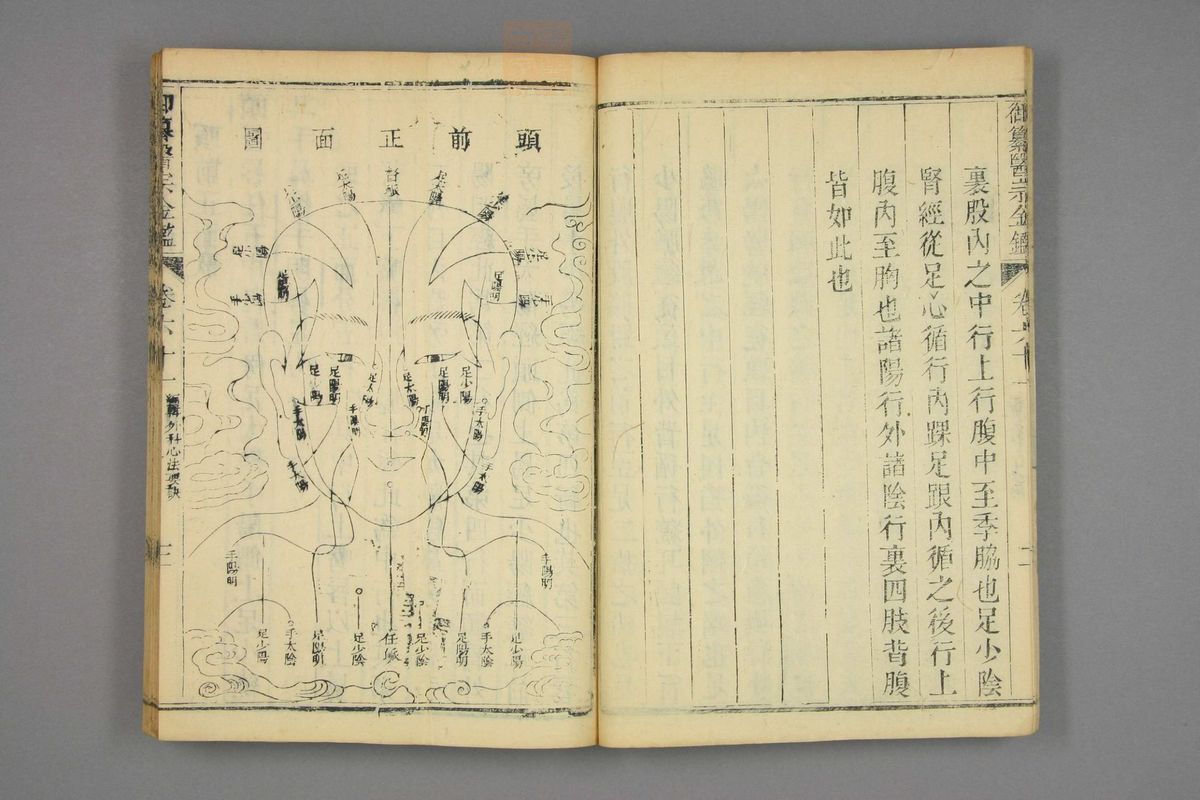 御纂醫宗金鑑
卷六十一
裏股內之中行上行腹中至季脇也足少陰
腎經從足心循行內踝足跟內循之後行上
腹內至胸也諸陽行外諸陰行裏四肢背腹
皆如此也
頭前正面圖
督脈
足太陽
足太陽
足陽明
足少陽
足陽明
足少陽
足太陽
足太陽
足陽明
足少陽
手陽明
手陽明
手太陽
手太陽
手太陽
手太陽
手陽明
手陽明
足少陽
手太陰
足陽明
足少陰
任脈
足少陰
足陽明
手太陰
足少陽
御纂醫宗金鑑
卷六十一
編輯外科心法要訣